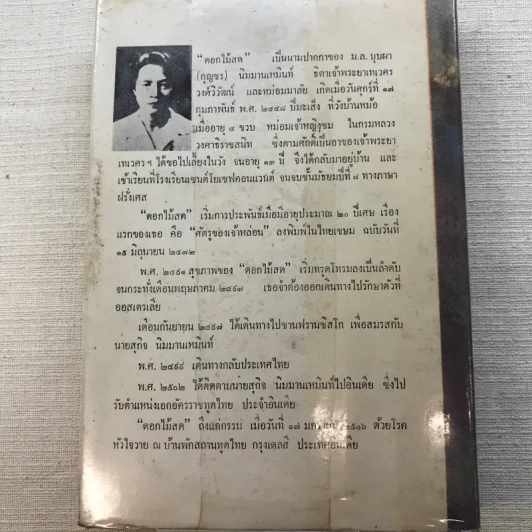 "ดอกไม้สด" เป็นนามปากกาของ ม.ล. บุบผา
(กุญชร) นิมมานเหมินท์ ธิดาเจ้าพระยาเทเวศร
วงศ์วิวัฒน์ และหม่อมมาลัย เกิดเมื่อวันศุกร์ที่ ๑๗
กุมภาพันธ์ พ.ศ. ๒๔๔๘ ปีมะเส็ง ที่วังบ้านหม้อ
เมื่ออายุ ๔ ขวบ หม่อมเจ้าหญิง ในกรมหลวง
วงศาธิราชสนิท ซึ่งตามศักดิ์เป็นอาของเจ้าพระยา
เทเวศรฯ ได้ขอไปเลี้ยงในวัง จนอายุ ๑๓ ปี จึงได้กลับมาอยู่บ้าน และ
เข้าเรียนที่โรงเรียนเซนต์โยเซฟคอนแวนต์ จนจบชั้นมัธยมปีที่ ๘ ทางภาษา
ฝรั่งเศส
"ดอกไม้สด" เริ่มการประพันธ์เมื่อมีอายุประมาณ ๒๐ ปีเศษ เรื่อง
แรกของเธอ คือ "ศัตรูของเจ้าหล่อน" ลงพิมพ์ในไทยเขษม ฉบับวันที่
๑๕ มิถุนายน ๒๔๗๒
พ.ศ. ๒๔๙๑ สุขภาพของ "ดอกไม้สด" เริ่มทรุดโทรมลงเป็นลำดับ
จนกระทั่งเดือนพฤษภาคม ๒๔๙๗ เธอจำต้องออกเดินทางไปรักษาตัวที่
ออสเตรเลีย
เดือนกันยายน ๒๔๙๗ ได้เดินทางไปซานฟรานซิสโก เพื่อสมรสกับ
นายสุกิจ นิมมานเหมินท์
พ.ศ. ๒๔๙๙ เดินทางกลับประเทศไทย
พ.ศ. ๒๕๐๒ ได้ติดตามนายสุกิจ นิมมานเหมินท์ไปอินเดีย ซึ่งไป
รับตำแหน่งเอกอัครราชทูตไทย ประจำอินเดีย
"ดอกไม้สด" ถึงแก่กรรม เมื่อวันที่ ๑๗ ๒๕๐๖ ด้วยโรค
หัวใจวาย ณ บ้านพักสถานทูตไทย กรุงเดลฮี ประเทศอินเดีย